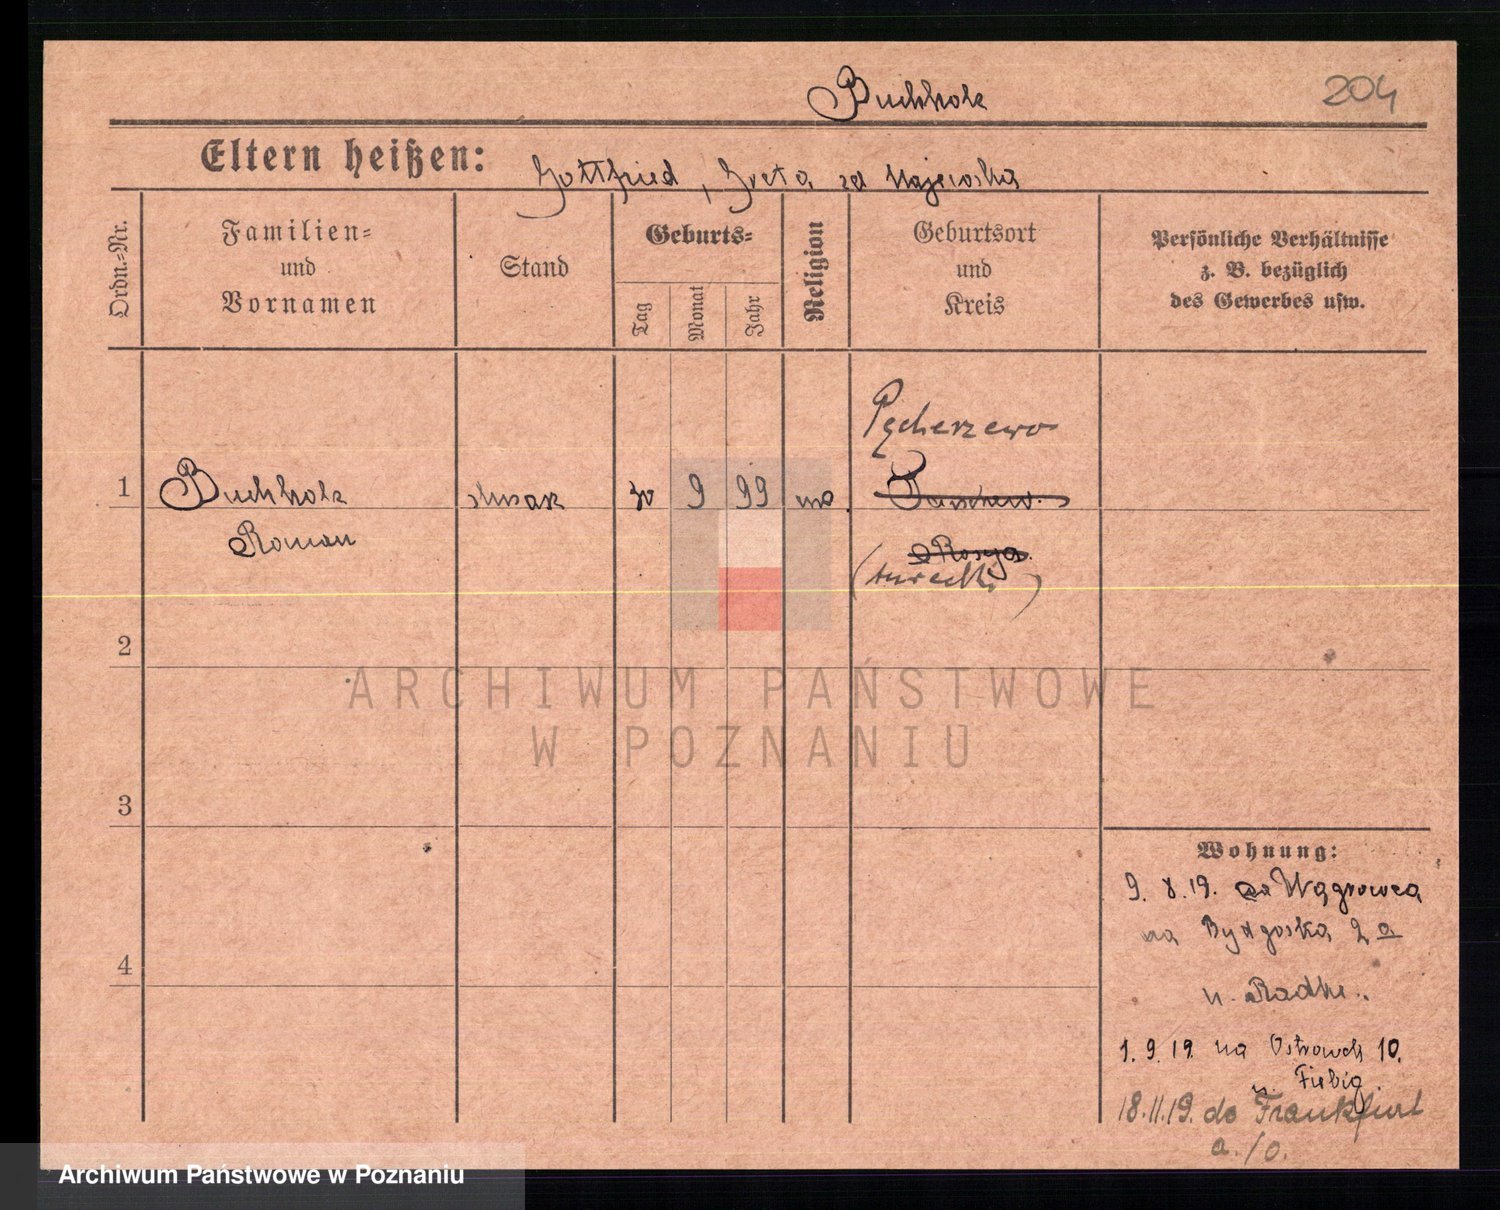 Buchholz
204
Eltern heißen: Gottfried, Greta zd Majewska
Ordn.-Nr.
Familien-
und
Vornamen
Stand
Geburts-
Tag
Monat
Jahr
Religion
Geburtsort
und
Kreis
Persönliche Verhältnisse
z. B. bezüglich
des Gewerbes usw.
Pęcherzewo
1 Buchholz ślusarz 9 99
Roman
Rosya
(turecki)
2
ARCHIWUM PAŃSTWOWE
W POZNANIU
3
Wohnung:
9. 8. 19. za Wągrowca
na Bydgoska 2 a
u. Radke.
4
1. 9. 19 na Ostrowek 10.
u. Fiebig.
18.11.19. do Frankfurt
a./O.
Archiwum Państwowe w Poznaniu